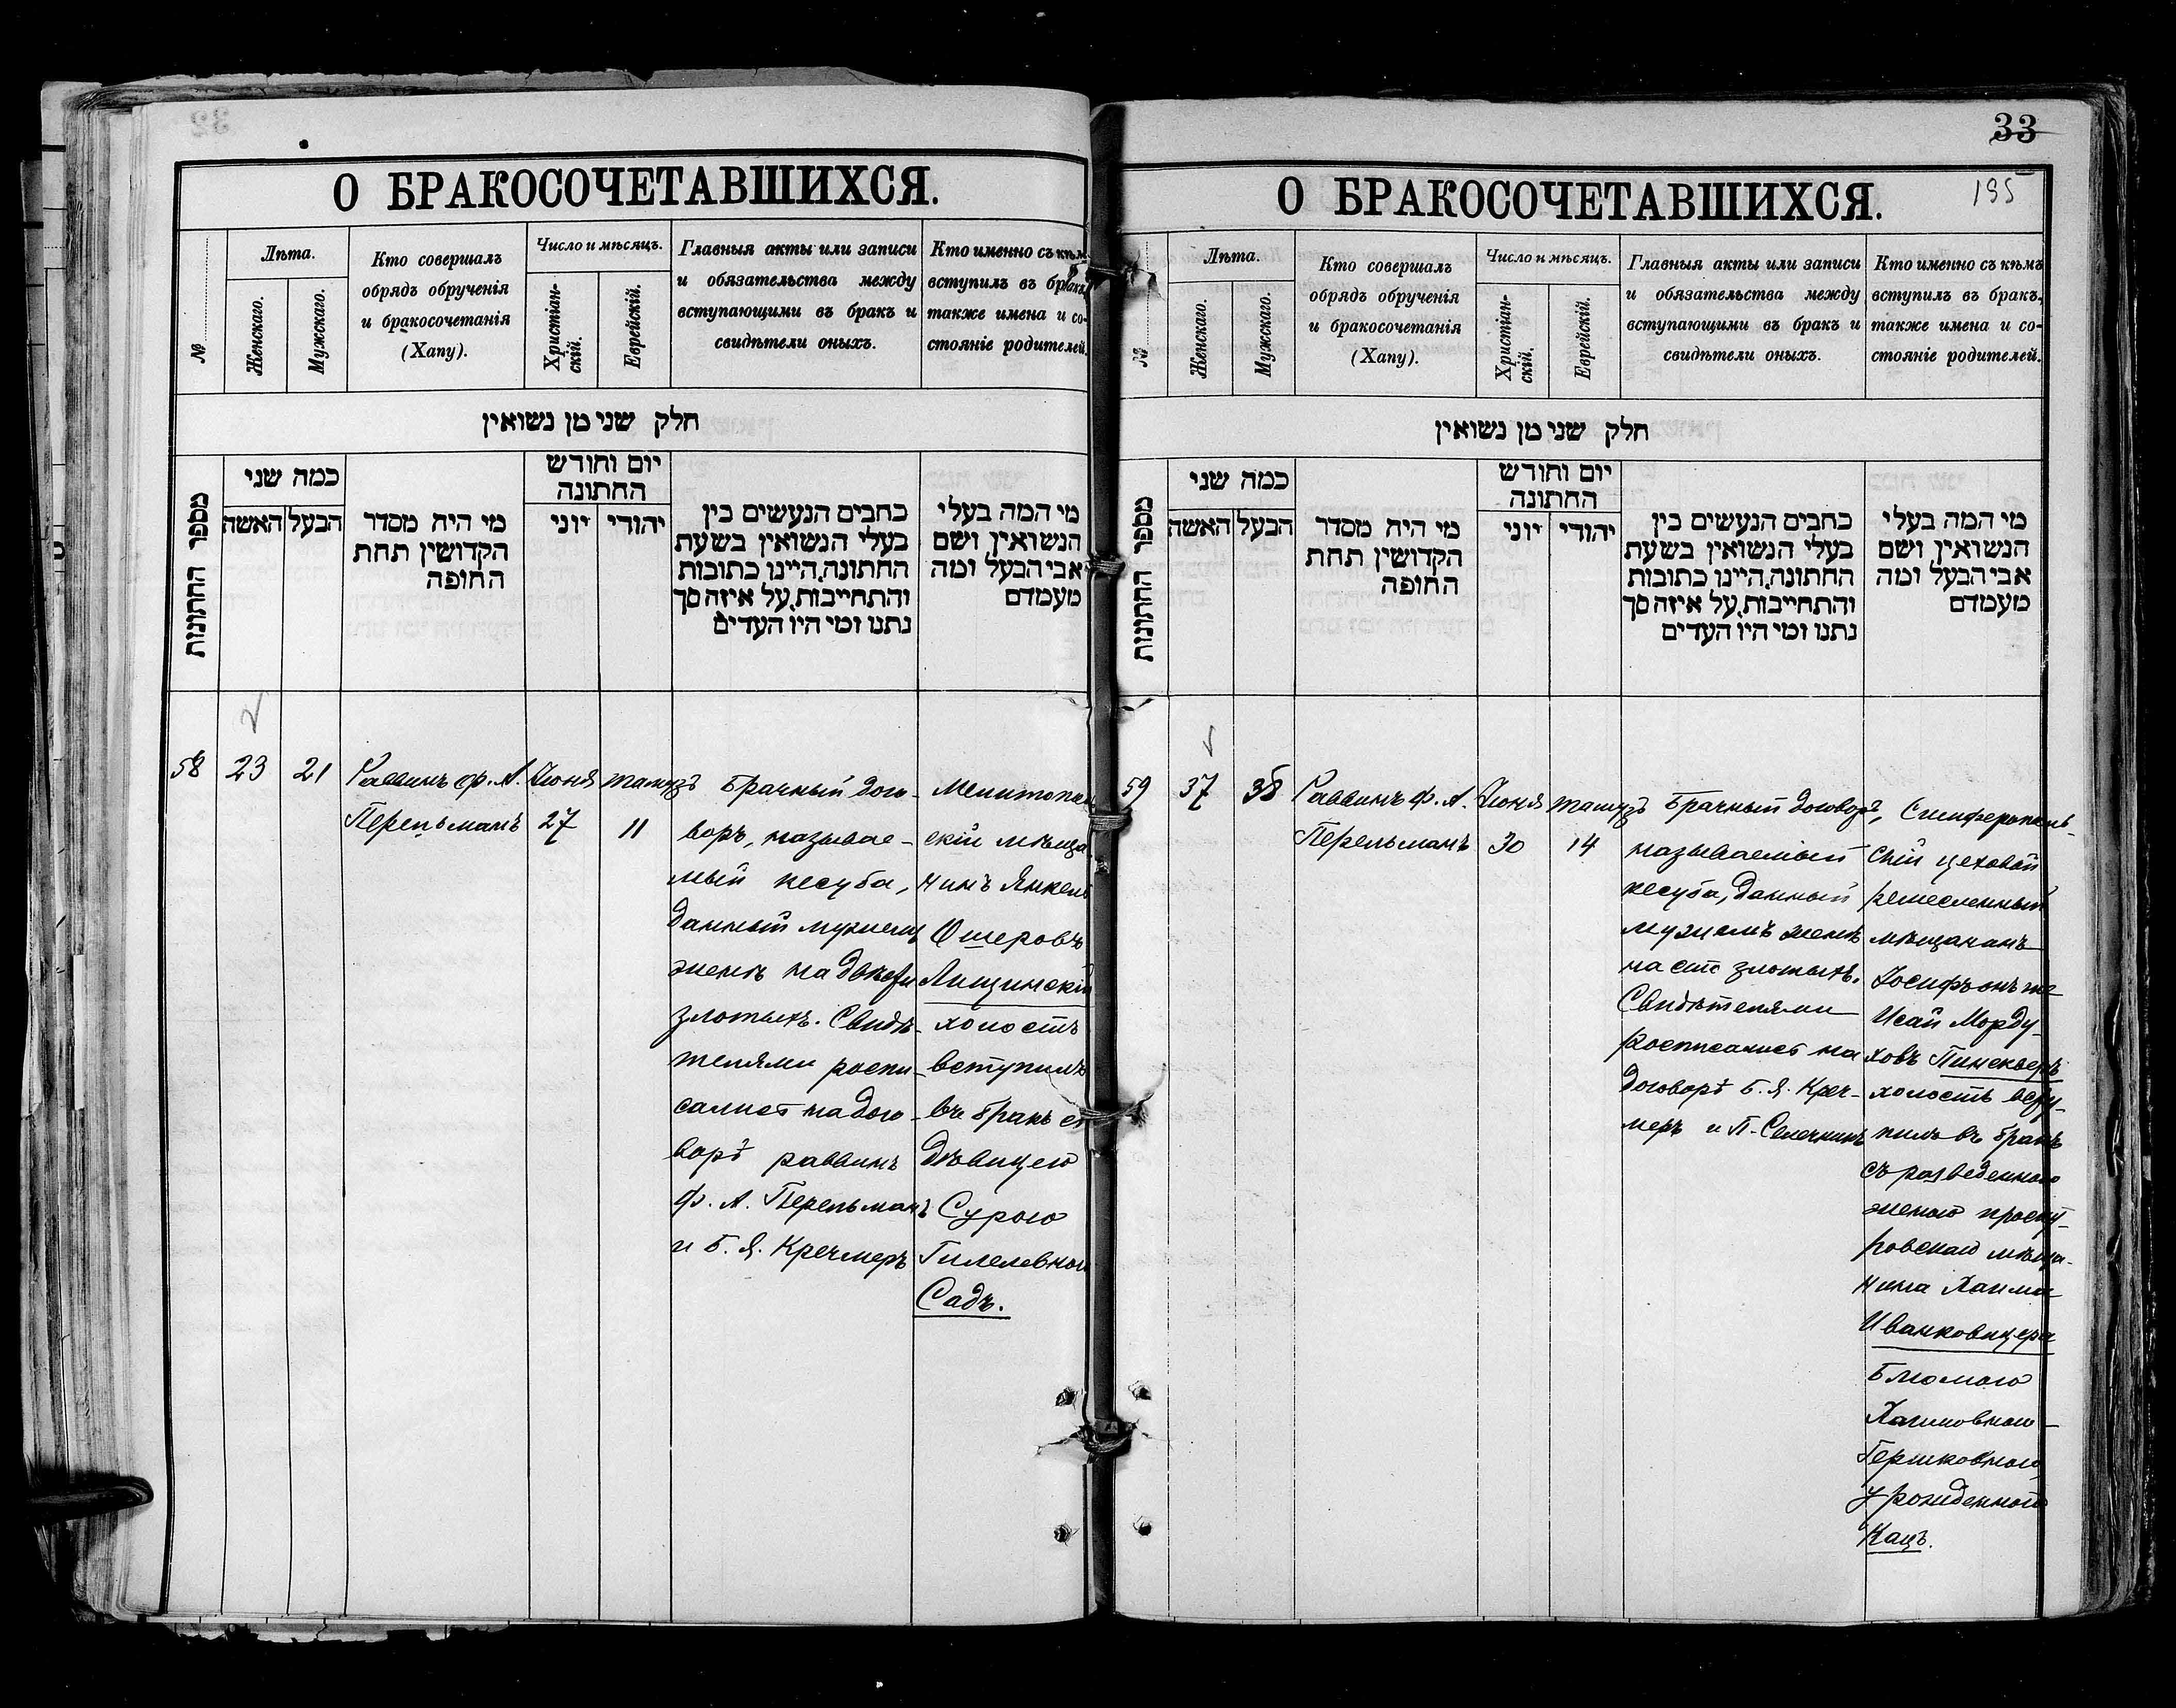 О БРАКОСОЧЕТАВШИХСЯ.
№
Лѣта.
Женскаго.
Мужскаго.
Кто совершалъ
обрядъ обрученія
и бракосочетанія
(Хапу).
Число и мѣсяцъ.
Христіан-
скій.
Еврейскій.
Главныя акты или записи
и обязательства между
вступающими въ бракъ и
свидѣтели оныхъ.
Кто именно съ кѣмъ
вступилъ въ бракъ,
также имена и со-
стояніе родителей.
חלק שני מן נשואין
מספר החתונות
כמה שני
הבעל
האשה
מי היה מסדר
הקדושין תחת
החופה
יום וחודש
החתונה
יהודי
יוני
כתבים הנעשים בין
בעלי הנשואין בשעת
החתונה, היינו כתובות
והתחייבות, על איזה סך
נתנו ומי היו העדים
מי המה בעלי
הנשואין ושם
אבי הבעל ומה
מעמדם
58
23
21
Раввинъ Ф. А.
Перельманъ
Июня
27
Тамузъ
11
Брачный дого-
воръ, называе-
мый кесуба,
данный мужемъ
женѣ на двѣсти
злотыхъ. Свидѣ-
телями роспи-
сались на дого-
ворѣ раввинъ
Ф. А. Перельманъ
и Б. Я. Кречмеръ
Мелитополь
скій мѣща
нинъ Янкель
Ошеровъ
Лищинскій
холостъ
вступилъ
въ бракъ съ
дѣвицею
Сурою
Гилелевною
Садъ.
33
195
О БРАКОСОЧЕТАВШИХСЯ.
№
Лѣта.
Женскаго.
Мужскаго.
Кто совершалъ
обрядъ обрученія
и бракосочетанія
(Хапу).
Число и мѣсяцъ.
Христіан-
скій.
Еврейскій.
Главныя акты или записи
и обязательства между
вступающими въ бракъ и
свидѣтели оныхъ.
Кто именно съ кѣмъ
вступилъ въ бракъ,
также имена и со-
стояніе родителей.
חלק שני מן נשואין
מספר החתונות
כמה שני
הבעל
האשה
מי היה מסדר
הקדושין תחת
החופה
יום וחודש
החתונה
יהודי
יוני
כתבים הנעשים בין
בעלי הנשואין בשעת
החתונה, היינו כתובות
והתחייבות, על איזה סך
נתנו ומי היו העדים
מי המה בעלי
הנשואין ושם
אבי הבעל ומה
מעמדם
59
37
38
Раввинъ Ф. А.
Перельманъ
Июня
30
Тамузъ
14
Брачный договоръ,
называемый
кесуба, данный
мужемъ женѣ
на сто злотыхъ.
Свидѣтелями
росписались на
договорѣ Б. Я. Креч-
меръ и П. Селечникъ
Симферополь-
скій цеховой
ремесленный
мѣщанинъ
Іосифъ онъ же
Исай Морду-
ховъ Пинскеръ
холостъ всту-
пилъ въ бракъ
съ разведенною
женою проску-
ровскаго мѣща-
нина Хаима
Иванковицера
Блюмою
Хаимовною-
Гершковною
урожденною
Кацъ.